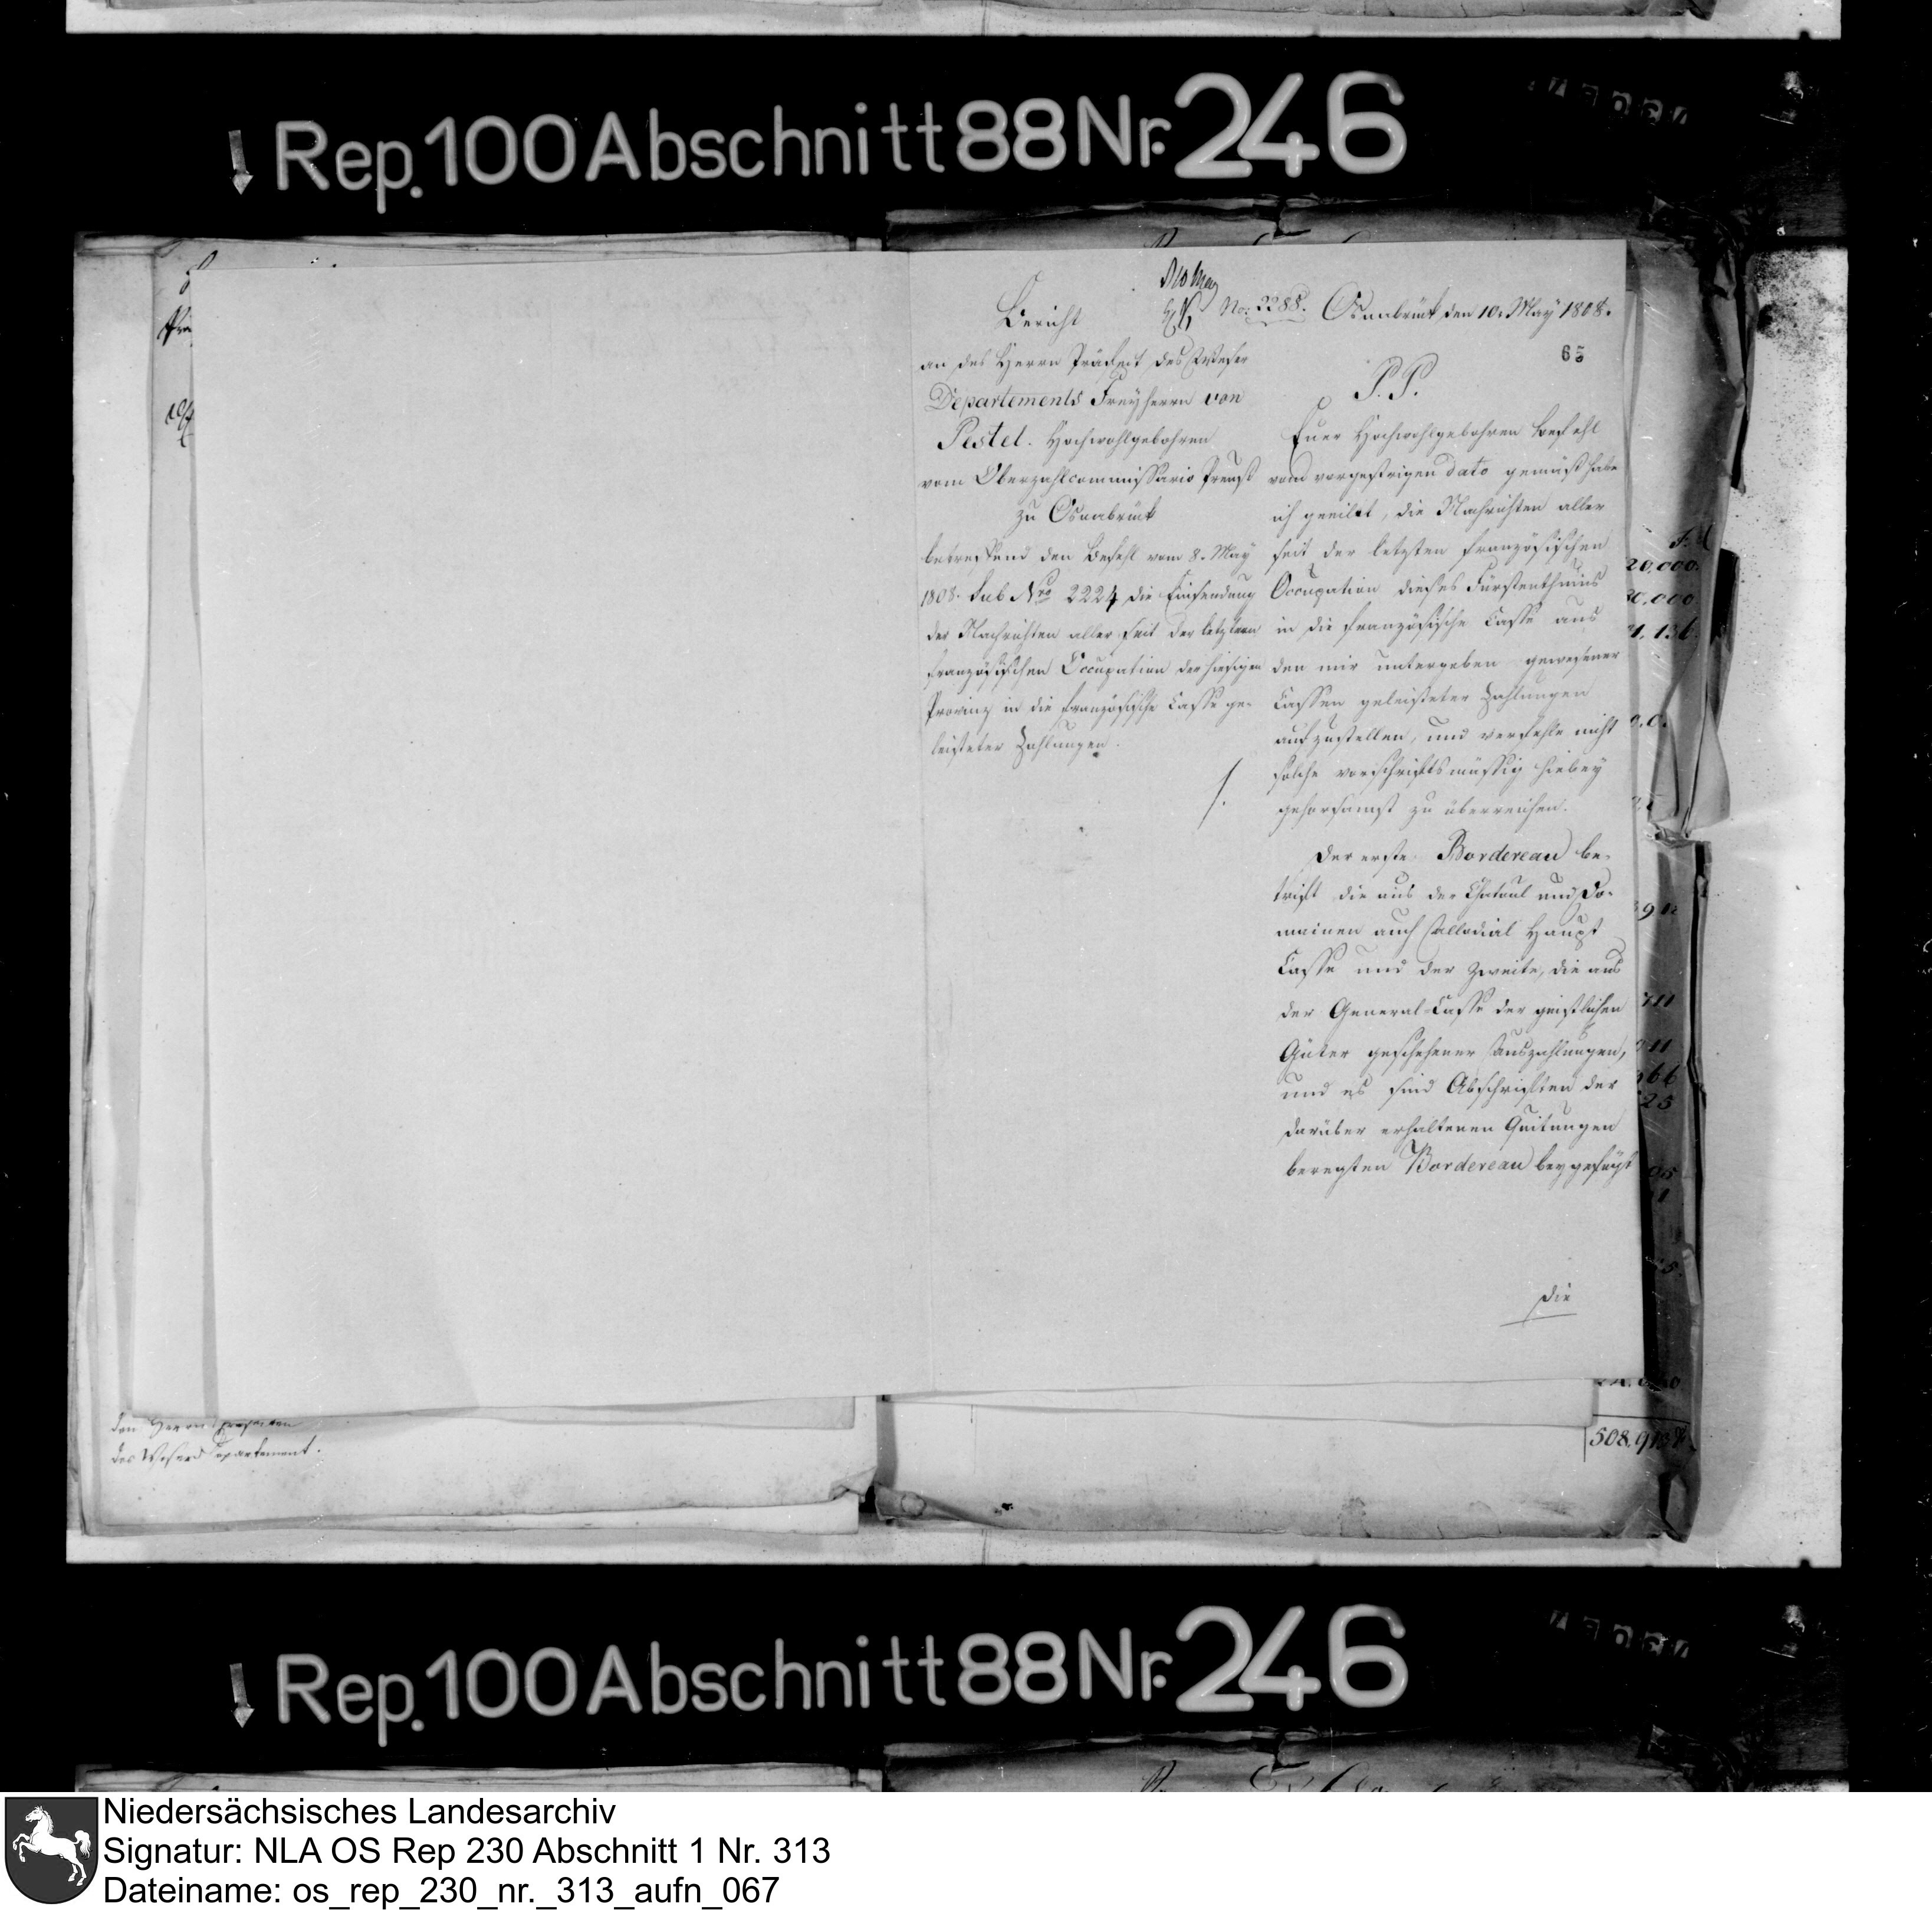 Rep. 100 Abschnitt 88 Nr. 246
Bericht
an des Herrn Präfect des Weser
Departements Freyherrn von
Pestel. Hochwohlgebohren
vom Oberzahlcommissario Preuß
zu Osnabrück
betreffend den Befehl vom 8. May
1808. sub Nro 2224 die Einsendung
der Nachrichten aller seit der letztern
französischen Occupation der hiesigen
Provinz in die französische Casse ge-
leisteter Zahlungen.
No. 2288. Osnabrück den 10. May 1808.
65
P. P.
Euer Hochwohlgebohren Befehl
vom vorgestrigen dato gemäß habe
ich geeilet, die Nachrichten aller
seit der letzten französischen
Occupation dieses Fürstenthums
in die französische Casse aus
den mir untergeben gewesener
Cassen geleisteter Zahlungen
aufzustellen, und verfehle nicht
solche vorschriftsmässig hiebey
gehorsamst zu überreichen.
Der erste Bordereau be-
trift die aus der Chatoul und Do-
mainen auch Allodial Haupt
Casse und der zweite, die aus
der General-Casse der geistlichen
Güter geschehener Auszahlungen,
und es sind Abschriften der
darüber erhaltenen Quitungen
beregten Bordereau beygefügt
die
20,000.
den Herrn
des Weser Departement.
Rep. 100 Abschnitt 88 Nr. 246
Niedersächsisches Landesarchiv
Signatur: NLA OS Rep 230 Abschnitt 1 Nr. 313
Dateiname: os_rep_230_nr._313_aufn_067